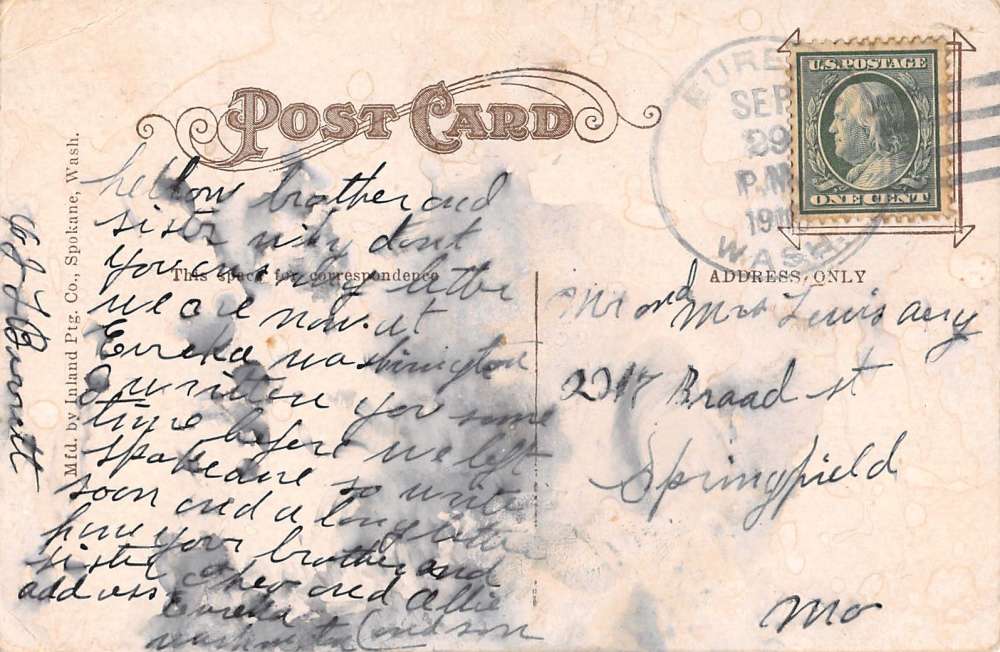 POST CARD
U.S. POSTAGE
ONE CENT
EURE
SEP
29
P.M.
191
WASH.
This space for correspondence
ADDRESS ONLY
Mfd. by Inland Ptg. Co., Spokane, Wash.
hellow brother and
sister why dont
you my letter
we are now at
Eureka washington
I written you some
time before we left
spokane so write
soon and a long letter
from your brother and
sister and Allie
address Eureka
washington and son
Mr and Mrs Lewis
Broad st
Springfield
Mo